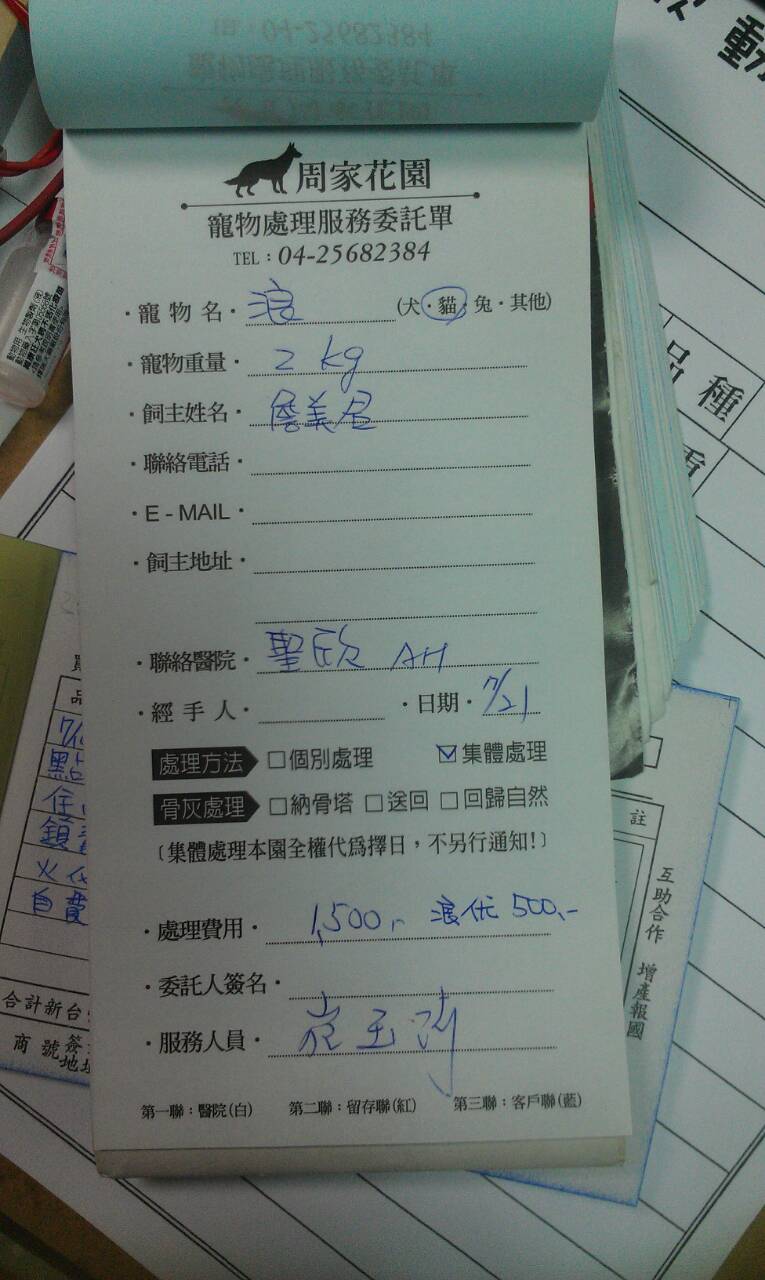 周家花園
寵物處理服務委託單
TEL：04-25682384
・寵物名・浪 (犬・貓・兔・其他)
・寵物重量・2 kg
・飼主姓名・詹美君
・聯絡電話・
・E-MAIL・
・飼主地址・
・聯絡醫院・聖欣 AH
・經手人・ ・日期・7/21
處理方法 □個別處理 ☑集體處理
骨灰處理 □納骨塔 □送回 □回歸自然
〔集體處理本園全權代爲擇日，不另行通知!〕
・處理費用・1,500,- 浪優 500,-
・委託人簽名・
・服務人員・
第一聯：醫院(白) 第二聯：留存聯(紅) 第三聯：客戶聯(藍)
品種
註
互助合作 增產報國
自費
合計新台
商號簽